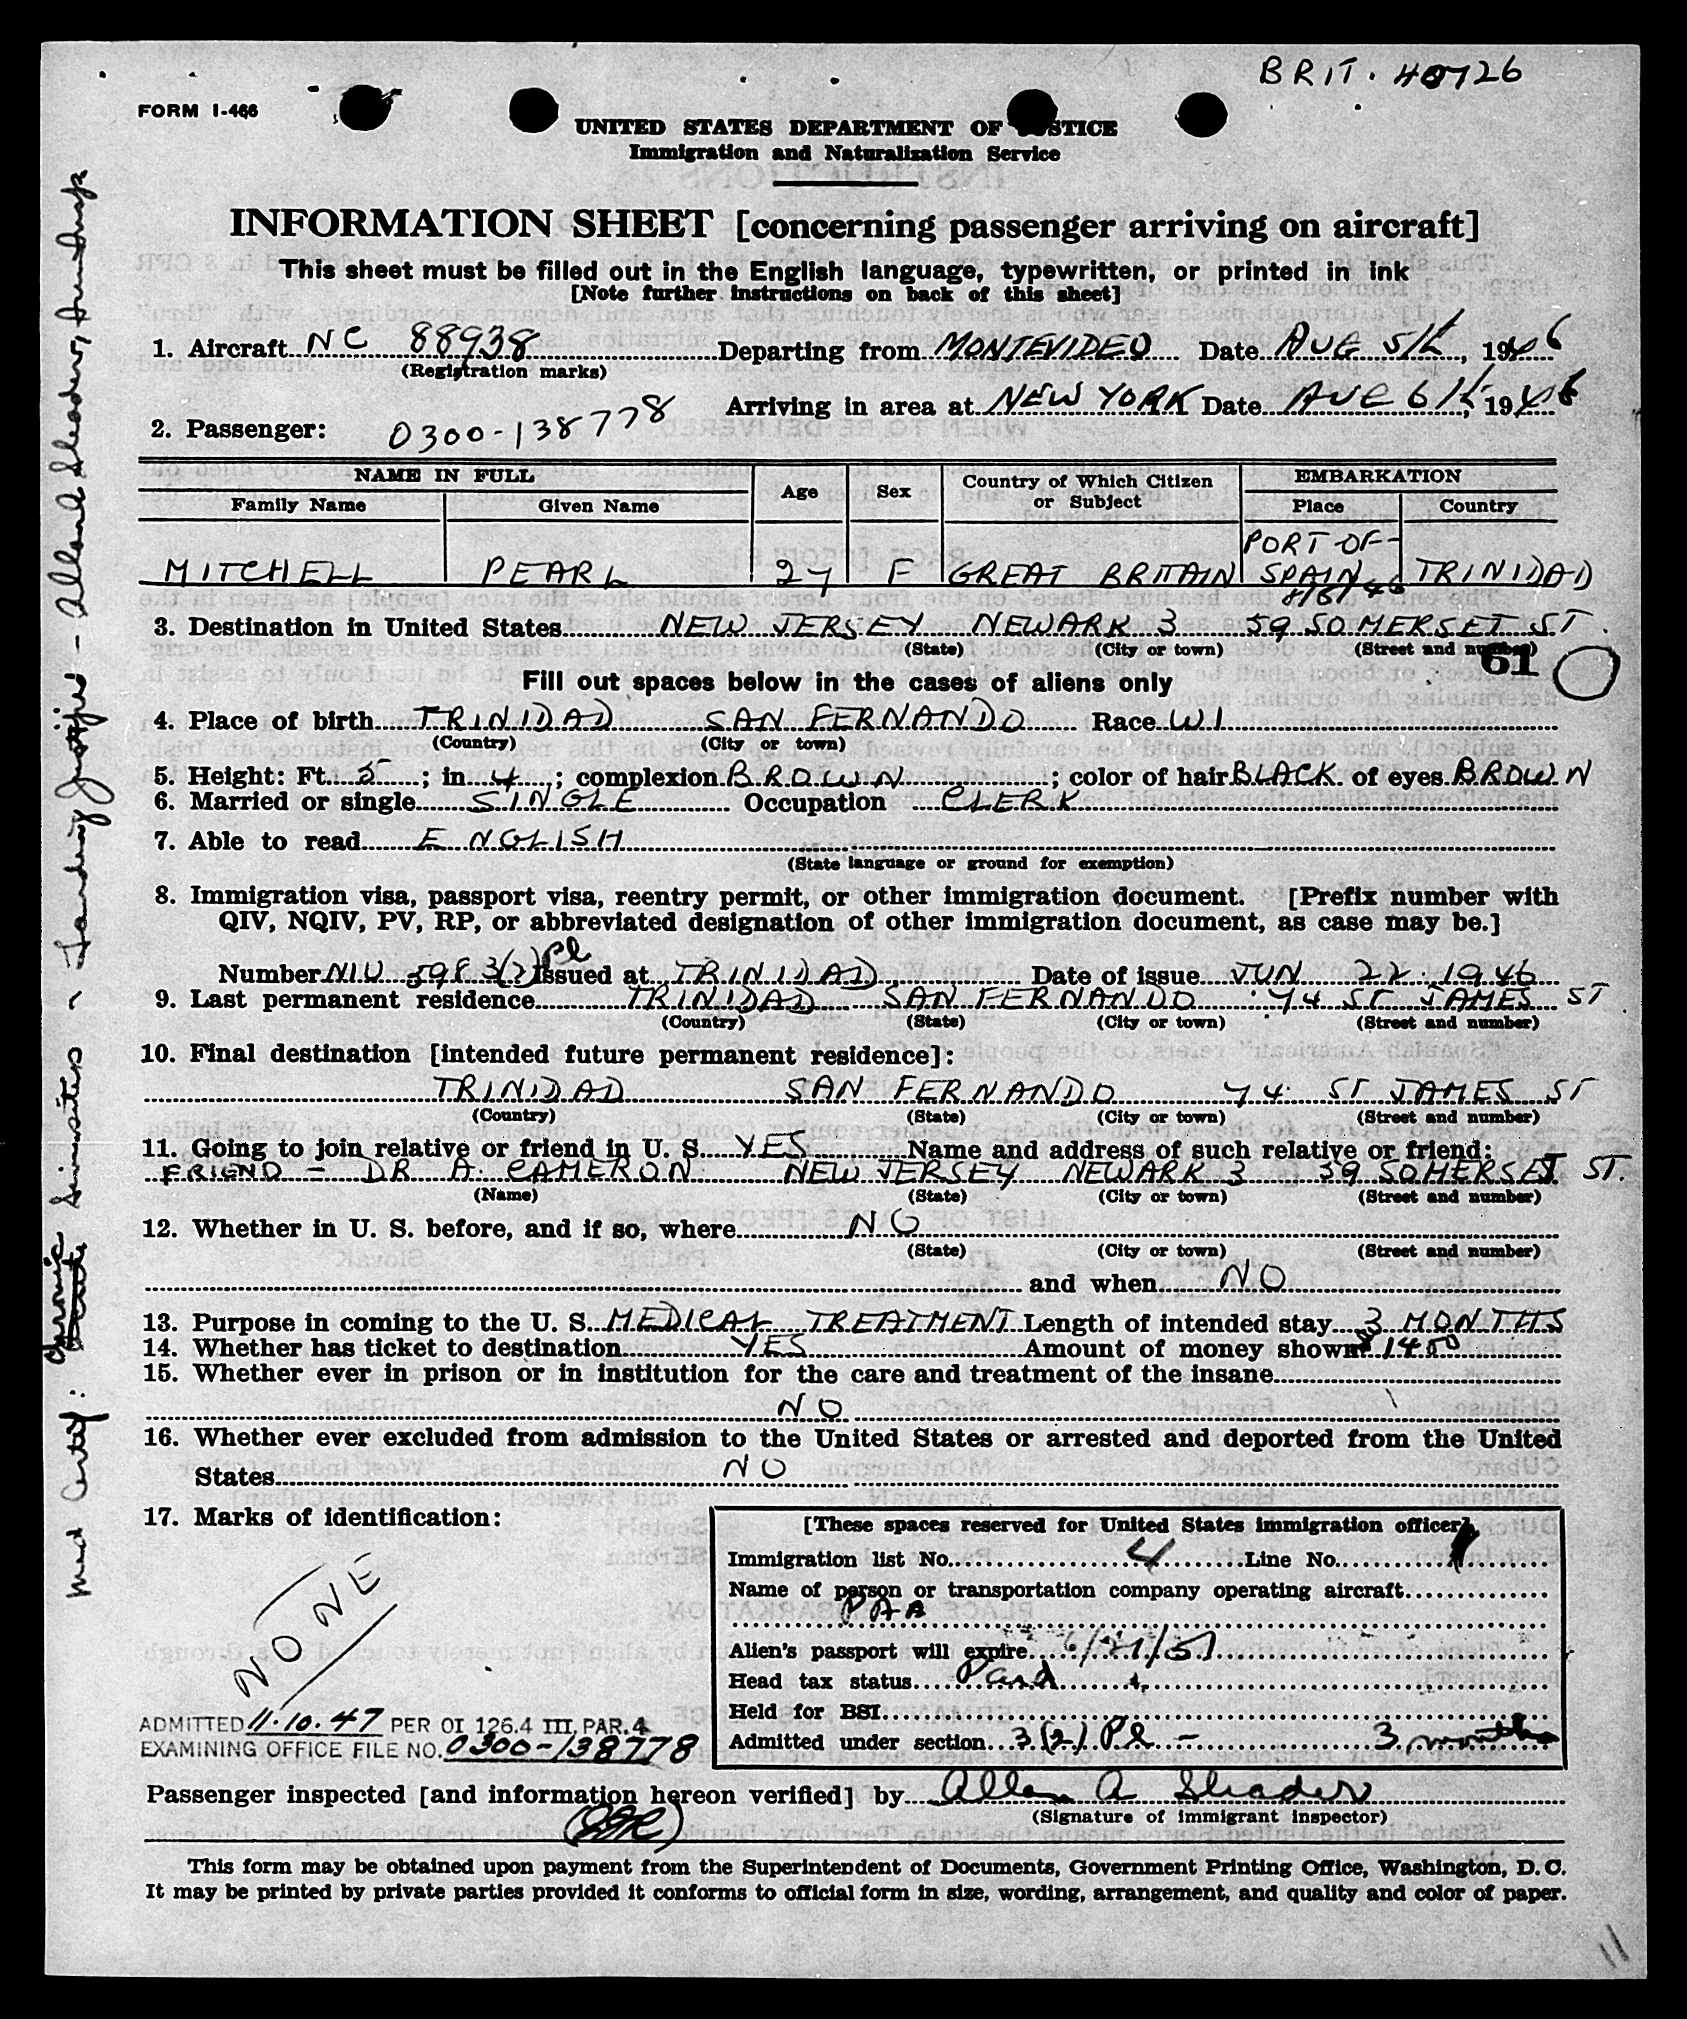 BRIT. 40726
FORM I-466
UNITED STATES DEPARTMENT OF JUSTICE
Immigration and Naturalization Service
INFORMATION SHEET [concerning passenger arriving on aircraft]
This sheet must be filled out in the English language, typewritten, or printed in ink
[Note further instructions on back of this sheet]
1. Aircraft NC 88938 Departing from MONTEVIDEO Date AUG 5th, 1946
(Registration marks)
Arriving in area at NEW YORK Date AUG 6th, 1946
2. Passenger: 0300-138778
NAME IN FULL Age Sex Country of Which Citizen or Subject EMBARKATION
Family Name Given Name Place Country
MITCHELL PEARL 27 F GREAT BRITAIN PORT-OF-SPAIN TRINIDAD
8/5/46
3. Destination in United States NEW JERSEY NEWARK 3 59 SOMERSET ST.
(State) (City or town) (Street and number)
61
Fill out spaces below in the cases of aliens only
4. Place of birth TRINIDAD SAN FERNANDO Race WI
(Country) (City or town)
5. Height: Ft. 5; in. 4; complexion BROWN; color of hair BLACK of eyes BROWN
6. Married or single SINGLE Occupation CLERK
7. Able to read ENGLISH
(State language or ground for exemption)
8. Immigration visa, passport visa, reentry permit, or other immigration document. [Prefix number with
QIV, NQIV, PV, RP, or abbreviated designation of other immigration document, as case may be.]
Number NIU 5983(2)Pl Issued at TRINIDAD Date of issue JUN 22. 1946
9. Last permanent residence TRINIDAD SAN FERNANDO 74 ST JAMES ST
(Country) (State) (City or town) (Street and number)
10. Final destination [intended future permanent residence]:
TRINIDAD SAN FERNANDO 74 ST JAMES ST
(Country) (State) (City or town) (Street and number)
11. Going to join relative or friend in U. S. YES Name and address of such relative or friend:
FRIEND - DR A. CAMERON NEW JERSEY NEWARK 3 59 SOMERSET ST.
(Name) (State) (City or town) (Street and number)
12. Whether in U. S. before, and if so, where NO
(State) (City or town) (Street and number)
and when NO
13. Purpose in coming to the U. S. MEDICAL TREATMENT Length of intended stay 3 MONTHS
14. Whether has ticket to destination YES Amount of money shown $1400
15. Whether ever in prison or in institution for the care and treatment of the insane
NO
16. Whether ever excluded from admission to the United States or arrested and deported from the United
States NO
17. Marks of identification:
NONE
[These spaces reserved for United States immigration officer]
Immigration list No. 4 Line No. 1
Name of person or transportation company operating aircraft
PAA
Alien's passport will expire 6/21/51
Head tax status Paid
Held for BSI
Admitted under section 3(2) Pl - 3 months
ADMITTED 11.10.47 PER OI 126.4 III, PAR.4
EXAMINING OFFICE FILE NO. 0300-138778
Passenger inspected [and information hereon verified] by Allen A Shader
(Signature of immigrant inspector)
This form may be obtained upon payment from the Superintendent of Documents, Government Printing Office, Washington, D. C.
It may be printed by private parties provided it conforms to official form in size, wording, arrangement, and quality and color of paper.
11
Med Certif: Chronic Sinusitis - Landing Justified -